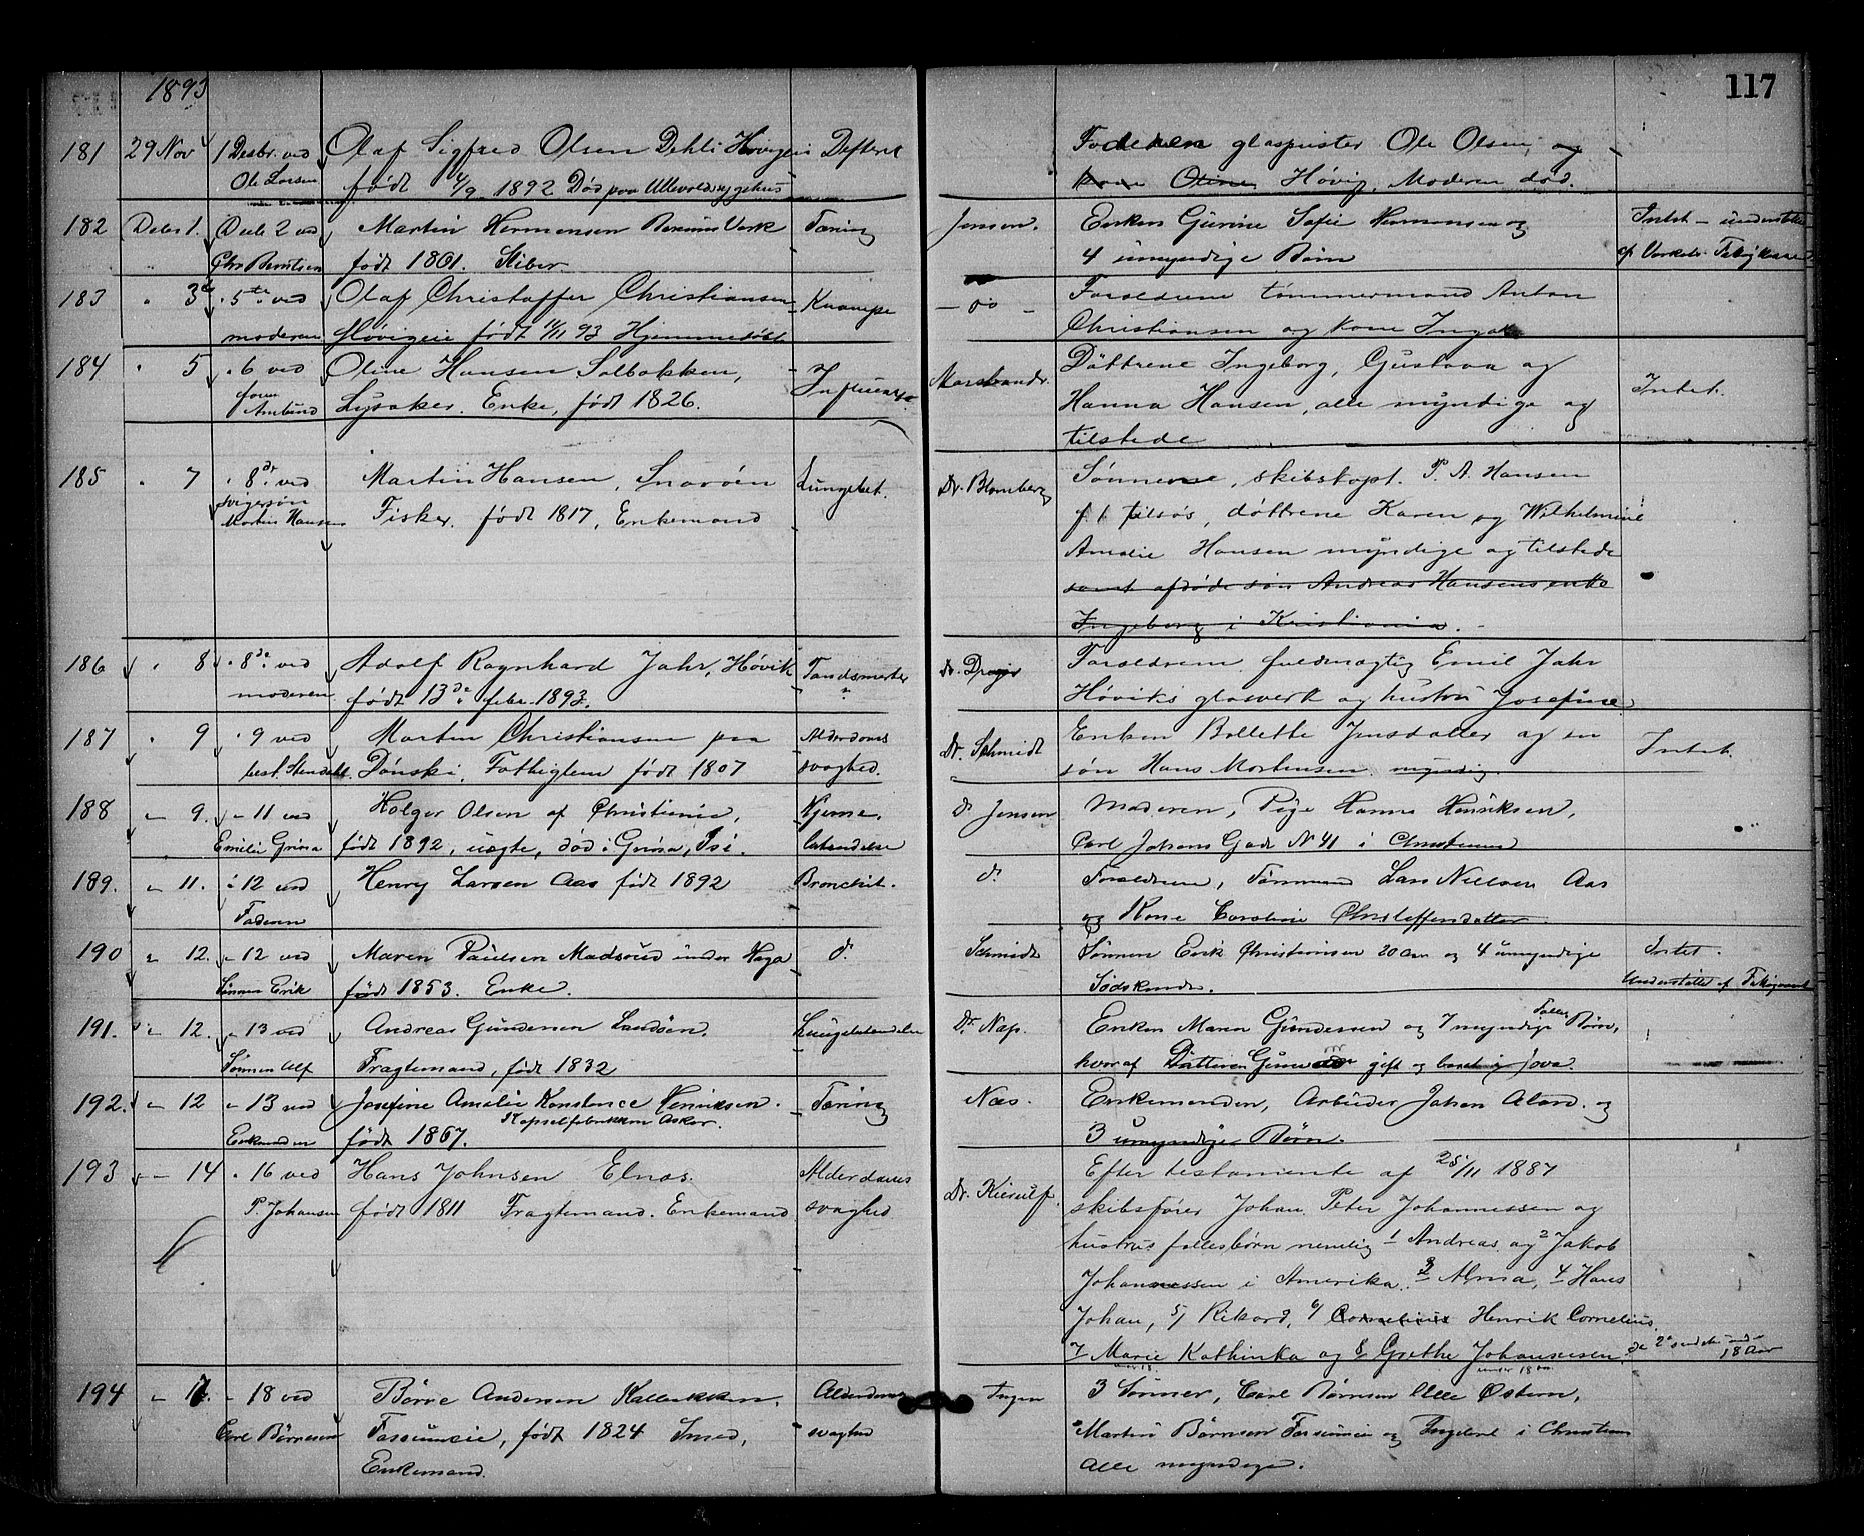 1893
117
181 29 Nov 1 Desbr. ved Olaf Sigfred Olsen Dehli Høvigeie Difterit Faderen glaspuster Ole Olsen, og
Ole Larsen født 4/9 1892 Død paa Ullevold sygehus kone Oline Høvig. Moderen død.
182 Decbr 1. Decb 2 ved Martin Hermansen Bærums Værk Tæring Jensen. Enken Gurine Sofie Hermansen og Intet - understøtt
Chr Berntsen født 1861. Stiber 4 umyndige Børn af Værkets Fatigkasse
183 " 3de " 5te ved Olaf Christoffer Christiansen Krampe - do - Forældrene tømmermand Anton
moderen Høvigeie født 11/11 93 Hjemmedøbt Christiansen og kone Inga
184 " 5 " 6 ved Oline Hansen Solbakken, Influenza. Marstrander. Døttrene Ingeborg, Gustava og Intet.
Amund Lysaker. Enke, født 1826. Hanna Hansen, alle myndige og
tilstede
185 " 7 " 8de ved Martin Hansen, Snarøen Lungebet. Dr. Blomberg Sønnerne, skibskapt. P. A. Hansen
svigersøn
Martin Hansen Fisker. født 1817, Enkemand f. t. tilsøs, døttrene Karen og Wilhelmine
Amalie Hansen myndige og tilstede
samt afdøde søn Andreas Hansens enke
Ingeborg i Kristiania.
186 " 8 " 8de ved Adolf Ragnhard Jahr, Høvik Tandsmerter dr. Forældrene fuldmægtig Emil Jahr
moderen født 13de febr. 1893. Høviks glasværk og hustru Josefine
187 " 9 " 9 ved Martin Christiansen paa Alderdoms Dr. Schmidt Enken Bollette Jensdatter og en Intet.
best. Stendahl. Dønski, Fattiglem født 1807 svaghed. søn Hans Mortensen myndig.
188 " 9. " 11 ved Holger Olsen af Christiania, Hjerne- dr Jensen Moderen, Pige Hanna Henriksen,
Emilie Grina født 1892, uægte, død i Grina, Isi. betændelse Carl Johans Gade N 41 i Christiania
189. " 11. " 12 ved Henry Larsen Aas født 1892 Bronchit. do Forældrene, Tømmermd Lars Nielsen Aas
Faderen og Kone Caroline Christoffersdatter
190 " 12. " 12 ved Maren Paulsen Madsrud under Haga do Schmidt Sønnen Erik Christiansen 20 aar og 4 umyndige Intet.
Sønnen Erik født 1853. Enke. Sødskende. Understøttet af Fatigvæsenet
191. " 12. " 13 ved Andreas Gundersen Landøen. Lungebetændelse Dr. Næs. Enken Maren Gundersen og 7 myndige Fælles Børn,
Sønnen Alf Fragtemand, født 1832 hvoraf Datteren gift og bosat i Java.
192. " 12 " 13 ved Josefine Amalie Konstance Henriksen. Tæring Næs. Enkemanden, Arbeider Johan og
Enkemanden født 1867. Kapselfabrikken Asker. 3 umyndige Børn.
193 " 14 " 16 ved Hans Johnsen Elnæs. Alderdoms Dr. Kierulf. Efter testamente af 25/11 1887
P. Johansen født 1811 Fragtemand. Enkemand svaghed skibsfører Johan Peter Johannessen og
hustrus fællesbørn nemlig 1 Andreas og 2 Jakob
Johannessen i Amerika. 3 Alma, 4 Hans
Johan, 5/ Rikard, 6/ Cornelius Henrik Cornelius.
7 Marie Kathinka og 8/ Grethe Johannessen. de 2 sidste under
18 Aar
under 18 aar
194 " 17. " 18 ved Børre Andersen Kallerækken. Alderdoms Ingen 3 Sønner, Carl Børresen Østern,
Carl Børresen Fossumeie, født 1824 Smed, svaghed Martin Børresen Fossumeie og Ingebret i Christiania
Enkemand. alle myndige.